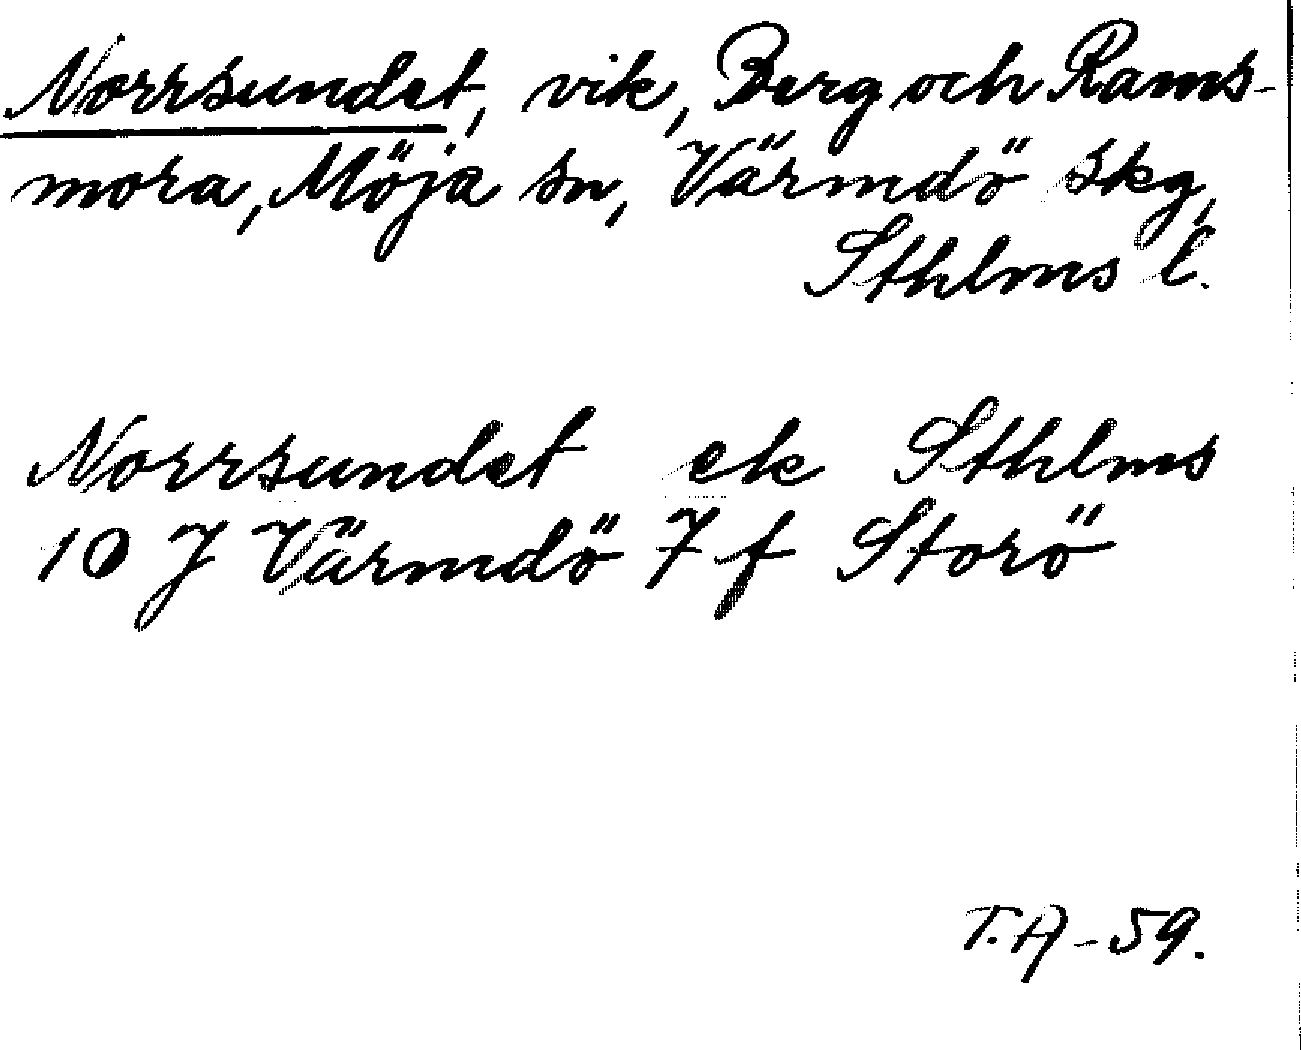 Norrsundet, vik, Berg och Rams-
mora, Möja sn, Värmdö skg,
Sthlms l.
Norrsundet ek Sthlms
10 J Värmdö 7 f Storö
T.A-59.